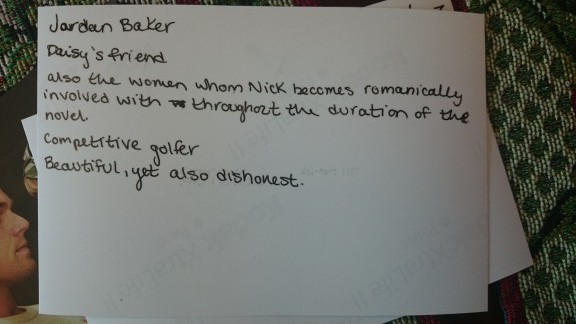 Jordan Baker
Daisy's friend
also the women whom Nick becomes romanically
involved with throughout the duration of the
novel.
Competitive golfer
Beautiful, yet also dishonest.